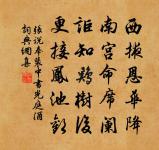 西掖恩華降
南宮命席闌
詎知鷄樹後
更接鳳池歡
張説奉裴中書光庭酒
詞典網集